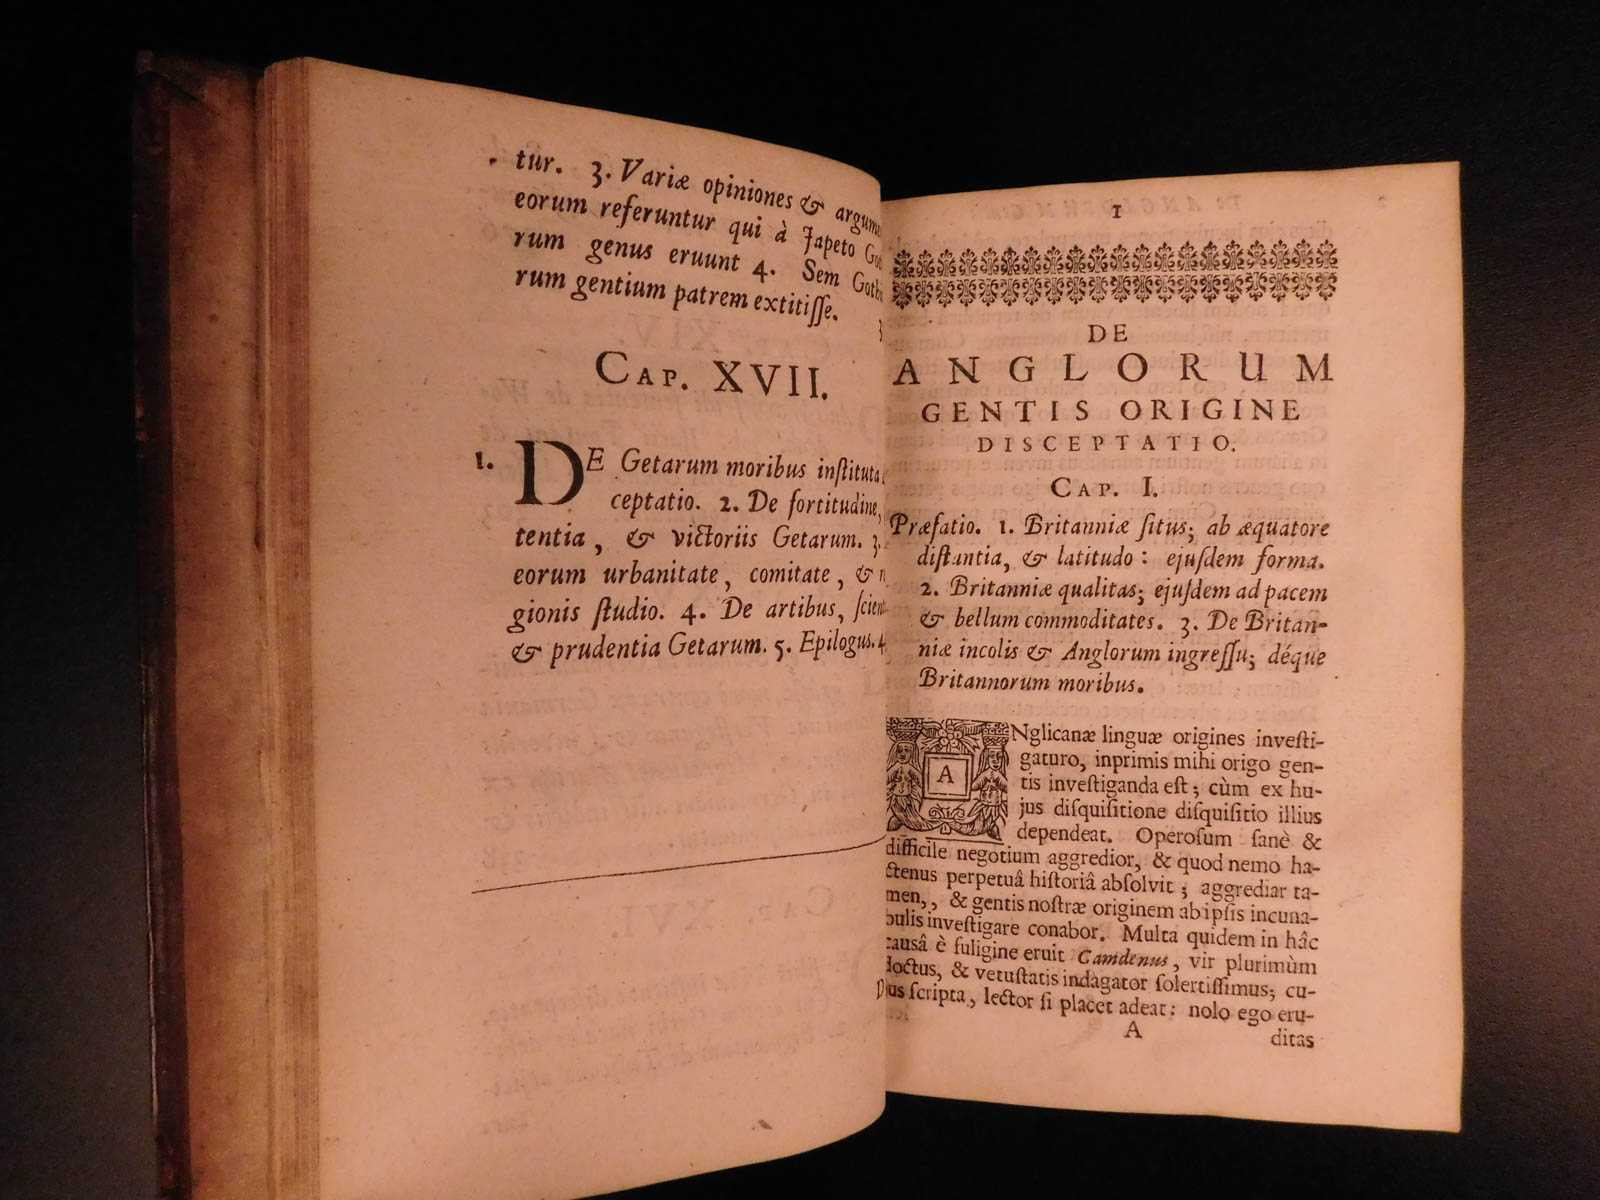 tur. 3. Variæ opiniones & argume
eorum referuntur qui à Japeto Go
rum genus eruunt 4. Sem Goth
rum gentium patrem extitiſſe.
3
CAP. XVII.
1. DE Getarum moribus inſtituta
ceptatio. 2. De fortitudine,
tentia, & victoriis Getarum. 3.
eorum urbanitate, comitate, &
gionis ſtudio. 4. De artibus, ſcien
& prudentia Getarum. 5. Epilogus. 4
1
DE
ANGLORUM
GENTIS ORIGINE
DISCEPTATIO.
CAP. I.
Præfatio. 1. Britanniæ ſitus; ab æquatore
diſtantia, & latitudo: ejuſdem forma.
2. Britanniæ qualitas; ejuſdem ad pacem
& bellum commoditates. 3. De Britan-
niæ incolis & Anglorum ingreſſu; déque
Britannorum moribus.
ANglicanæ linguæ origines inveſti-
gaturo, inprimis mihi origo gen-
tis inveſtiganda eſt; cùm ex hu-
jus diſquiſitione diſquiſitio illius
dependeat. Operoſum ſanè &
difficile negotium aggredior, & quod nemo ha-
ctenus perpetuâ hiſtoriâ abſolvit; aggrediar ta-
men,, & gentis noſtræ originem ab ipſis incuna-
bulis inveſtigare conabor. Multa quidem in hâc
causâ è fuligine eruit Camdenus, vir plurimùm
doctus, & vetuſtatis indagator ſolertiſſimus; cu-
jus ſcripta, lector ſi placet adeat: nolo ego eru-
A
ditas